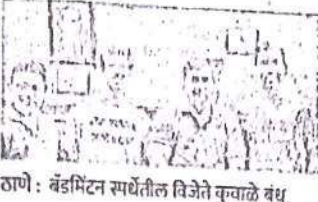 ठाणे : बॅडमिंटन स्पर्धेतील विजेते कवाळे बंधू